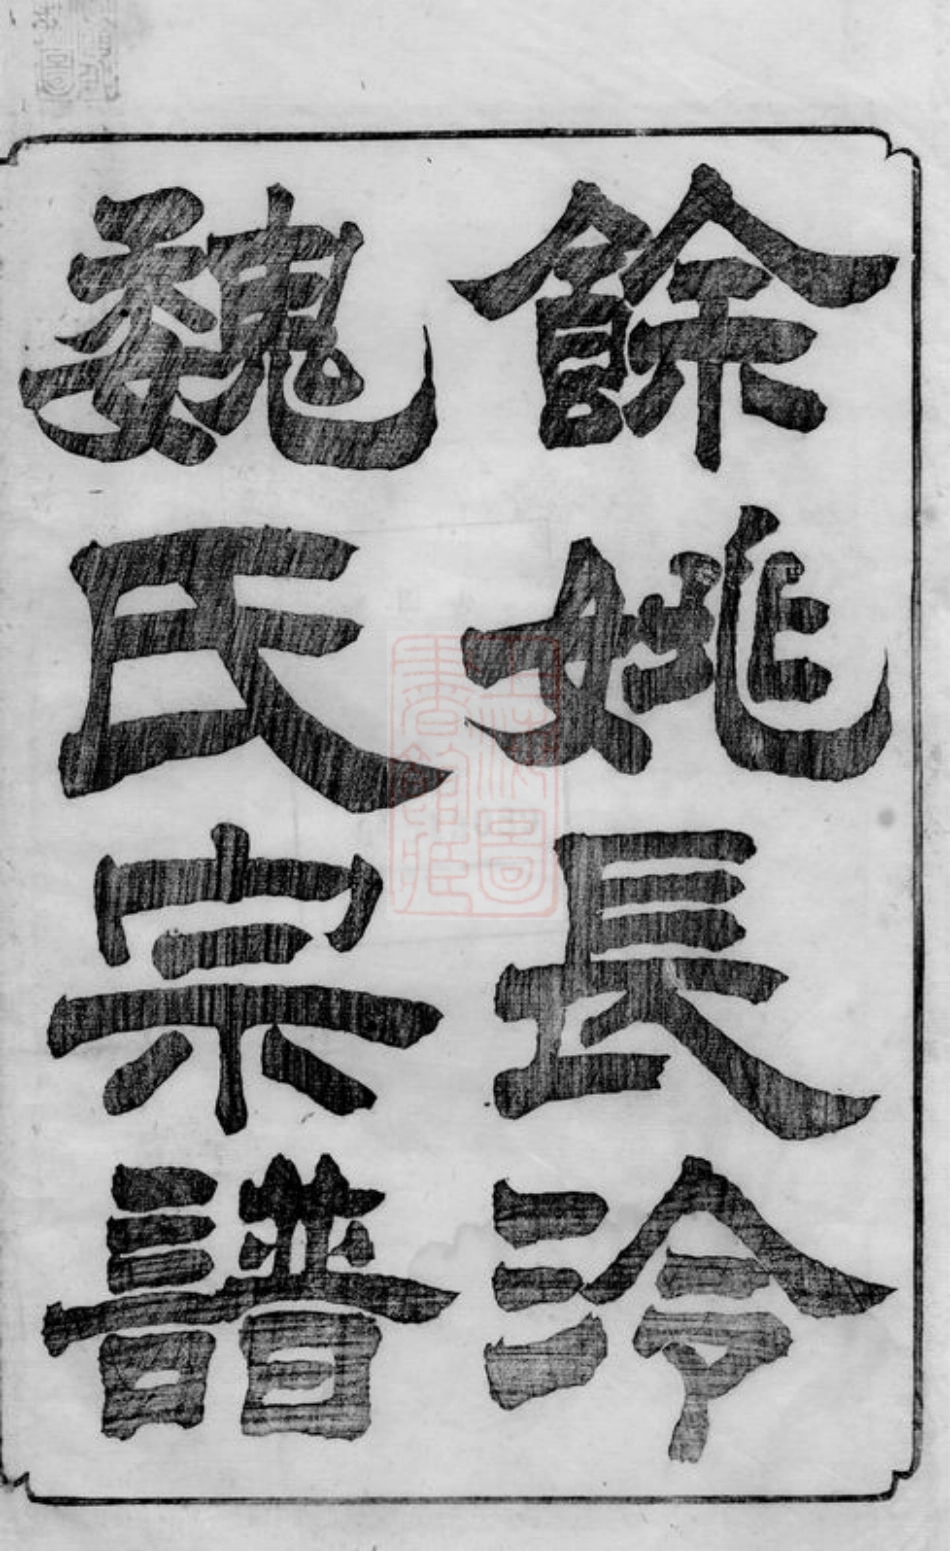 餘姚長泠
魏氏宗譜